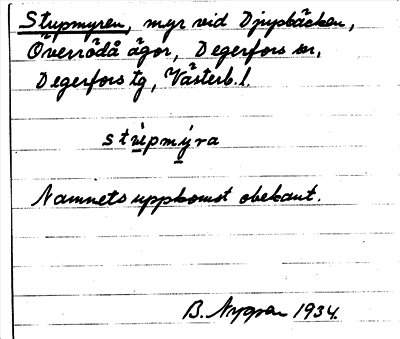 Stupmyren, myr vid Djupbäcken,
Överrödå ägor, Degerfors sn,
Degerfors tg, Västerb. l.
stupmyra
Namnets uppkomst obekant.
B. Nygren 1934.